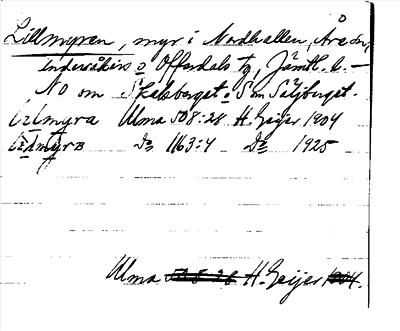 Lillmyren, myr i Nordhallen, Åre sn,
Undersåkers o Offerdals tg, Jämtl. l. —
NO om Skalsberget o S om Säljberget.
Ulma 508:28 H. Geijer 1904
Do 1163:4 Do 1925
Ulma 508:28 H. Geijer 1904.